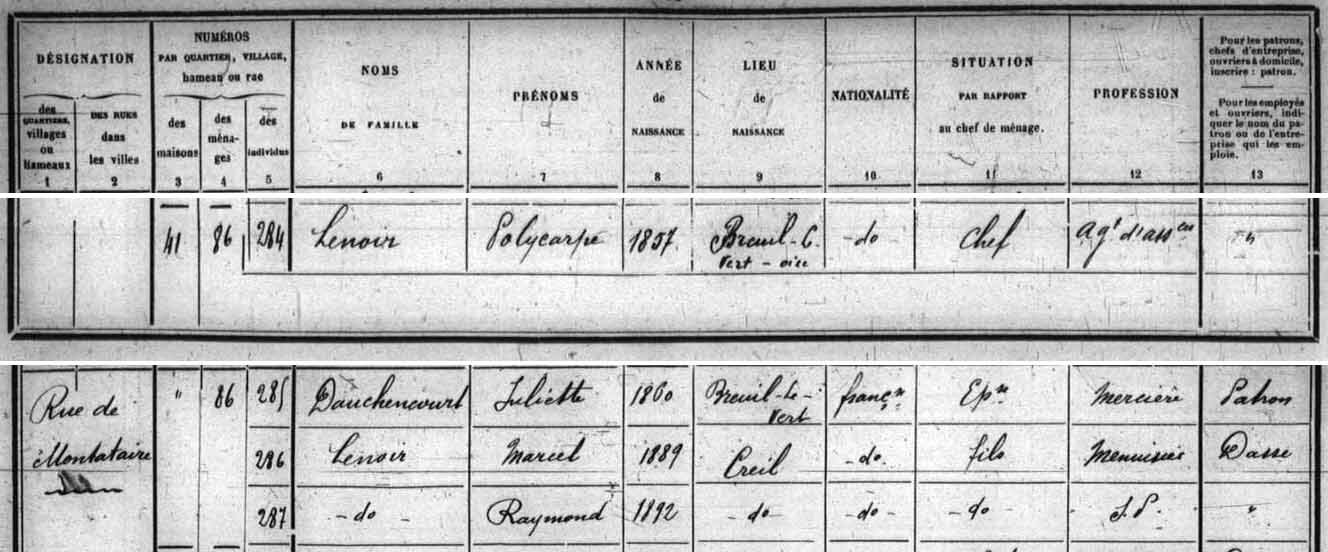 DÉSIGNATION
des QUARTIERS, villages ou hameaux
1
DES RUES dans les villes
2
NUMÉROS
PAR QUARTIER, VILLAGE,
hameau ou rue
des maisons
3
des ména-ges
4
des individus
5
NOMS
DE FAMILLE
6
PRÉNOMS
7
ANNÉE
de
NAISSANCE
8
LIEU
de
NAISSANCE
9
NATIONALITÉ
10
SITUATION
PAR RAPPORT
au chef de ménage.
11
PROFESSION
12
Pour les patrons,
chefs d'entreprise,
ouvriers à domicile,
inscrire : patron.
Pour les employés
et ouvriers, indi-
quer le nom du pa-
tron ou de l'entre-
prise qui les em-
ploie.
13
41 86 284 Lenoir Polycarpe 1857. Breuil-l. -do- Chef agt d'assces "
Vert - oise
Rue de " 86 285 Dauchencourt Juliette 1860 Breuil-le- françse Epse Mercière Patron
Vert
Montataire 286 Lenoir Marcel 1889 Creil -do. fils Menuisier Dasse
287 - do - Raymond 1892 - do- -do- - do- S.P. "